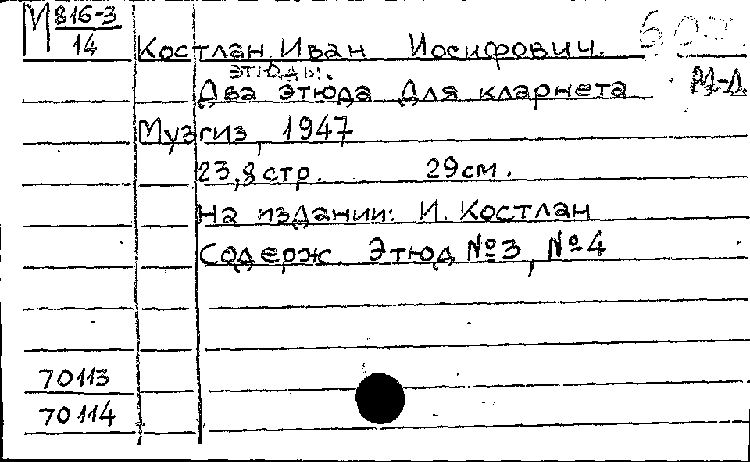 М 816-3
14
Костлан Иван Иосифович.
этюды.
Два этюда для кларнета
Музгиз, 1947
23,8 стр. 29 см.
На издании: И. Костлан
Содерж. Этюд №3, №4
70113
70114